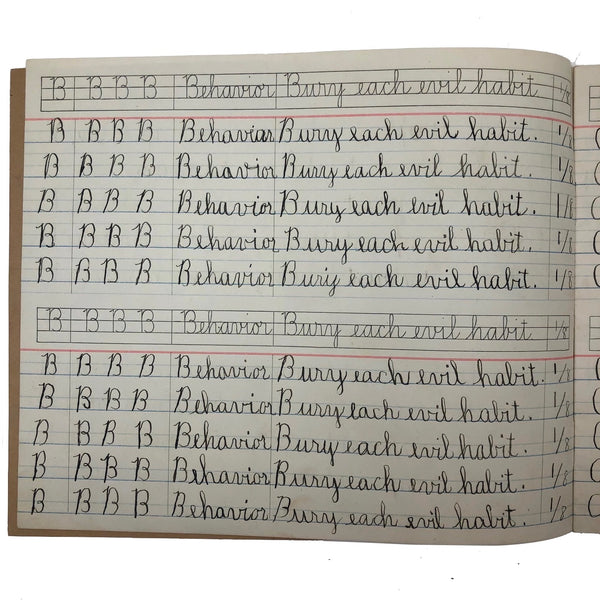 B B B B Behavior Bury each evil habit 1/8
B B B B Behavior Bury each evil habit. 1/8
B B B B Behavior Bury each evil habit. 1/8
B B B B Behavior Bury each evil habit. 1/8
B B B B Behavior Bury each evil habit. 1/8
B B B B Behavior Bury each evil habit. 1/8
B B B B Behavior Bury each evil habit 1/8
B B B B Behavior Bury each evil habit. 1/8
B B B B Behavior Bury each evil habit. 1/8
B B B B Behavior Bury each evil habit. 1/8
B B B B Behavior Bury each evil habit. 1/8
B B B B Behavior Bury each evil habit. 1/8